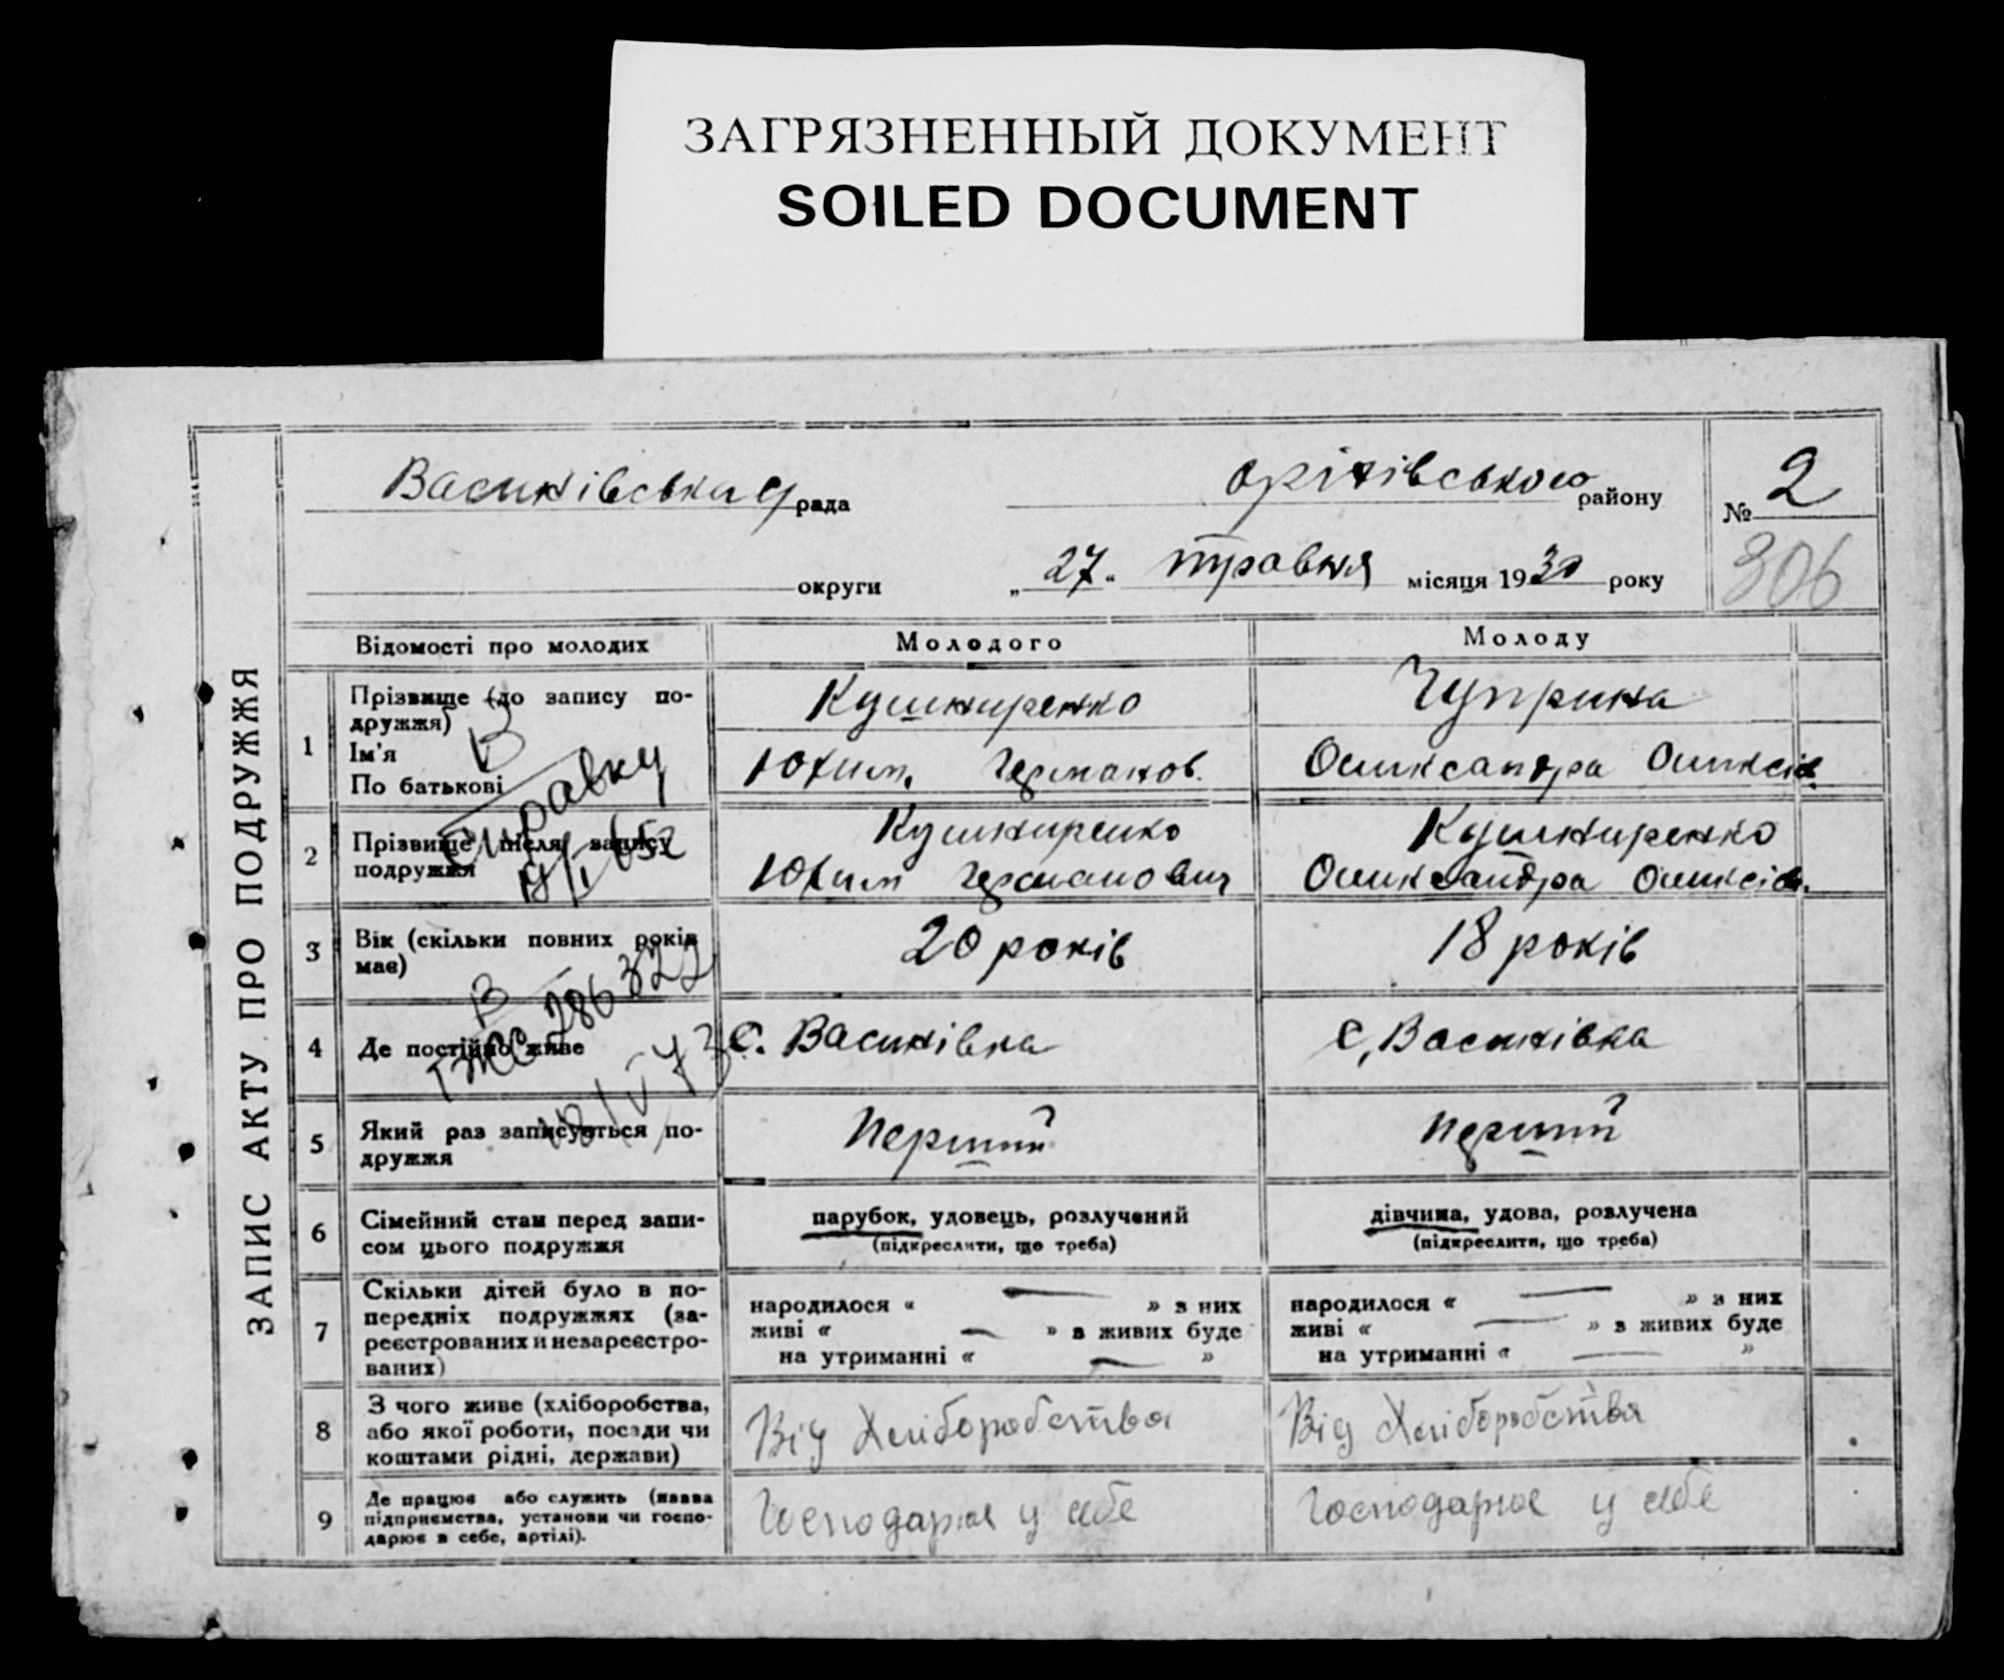 ЗАГРЯЗНЕННЫЙ ДОКУМЕНТ
SOILED DOCUMENT
ЗАПИС АКТУ ПРО ПОДРУЖЖЯ
рада
району
№ 2
округи
„ 27 " травня місяця 1930 року
306
Відомості про молодих
Молодого
Молоду
1
Прізвище (до запису по-
дружжя)
Ім'я
По батькові
Кушниренко
Юхим Германов.
Чуприна
Олександра Олексіїв.
В
справку
2
Прізвище після запису
подружжя
Кушниренко
Юхим Германович
Кушниренко
Олександра Олексіїв.
3
Вік (скільки повних років
має)
20 років
18 років
В
286322
4
Де постійно живе
с. Василівка
с. Василівка
5
Який раз записується по-
дружжя
перший
перший
6
Сімейний стан перед запи-
сом цього подружжя
парубок, удовець, розлучений
(підкреслити, що треба)
дівчина, удова, розлучена
(підкреслити, що треба)
7
Скільки дітей було в по-
передніх подружжях (за-
реєстрованих и незареєстро-
ваних)
народилося « — » з них
живі « — » в живих буде
на утриманні « — »
народилося « — » з них
живі « — » в живих буде
на утриманні « — »
8
З чого живе (хліборобства,
або якої роботи, посади чи
коштами рідні, держави)
Від Хліборобства
Від Хліборобства
9
Де працює або служить (назва
підприємства, установи чи госпо-
дарює в себе, артілі).
Господарює у себе
Господарює у себе